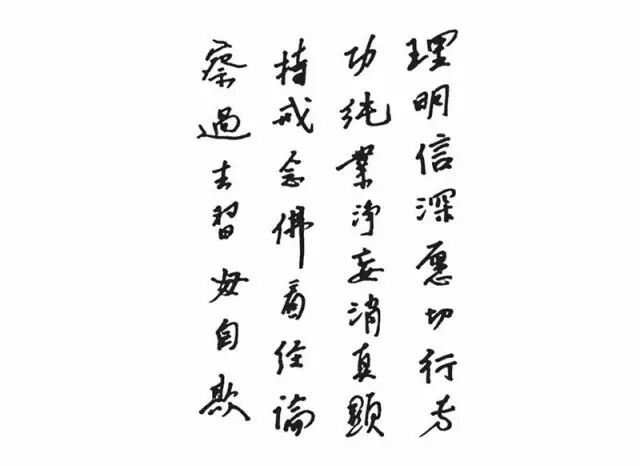 理明信深愿切行专
功纯業净妄消真顯
持戒念佛看经論
察過去習毋自欺